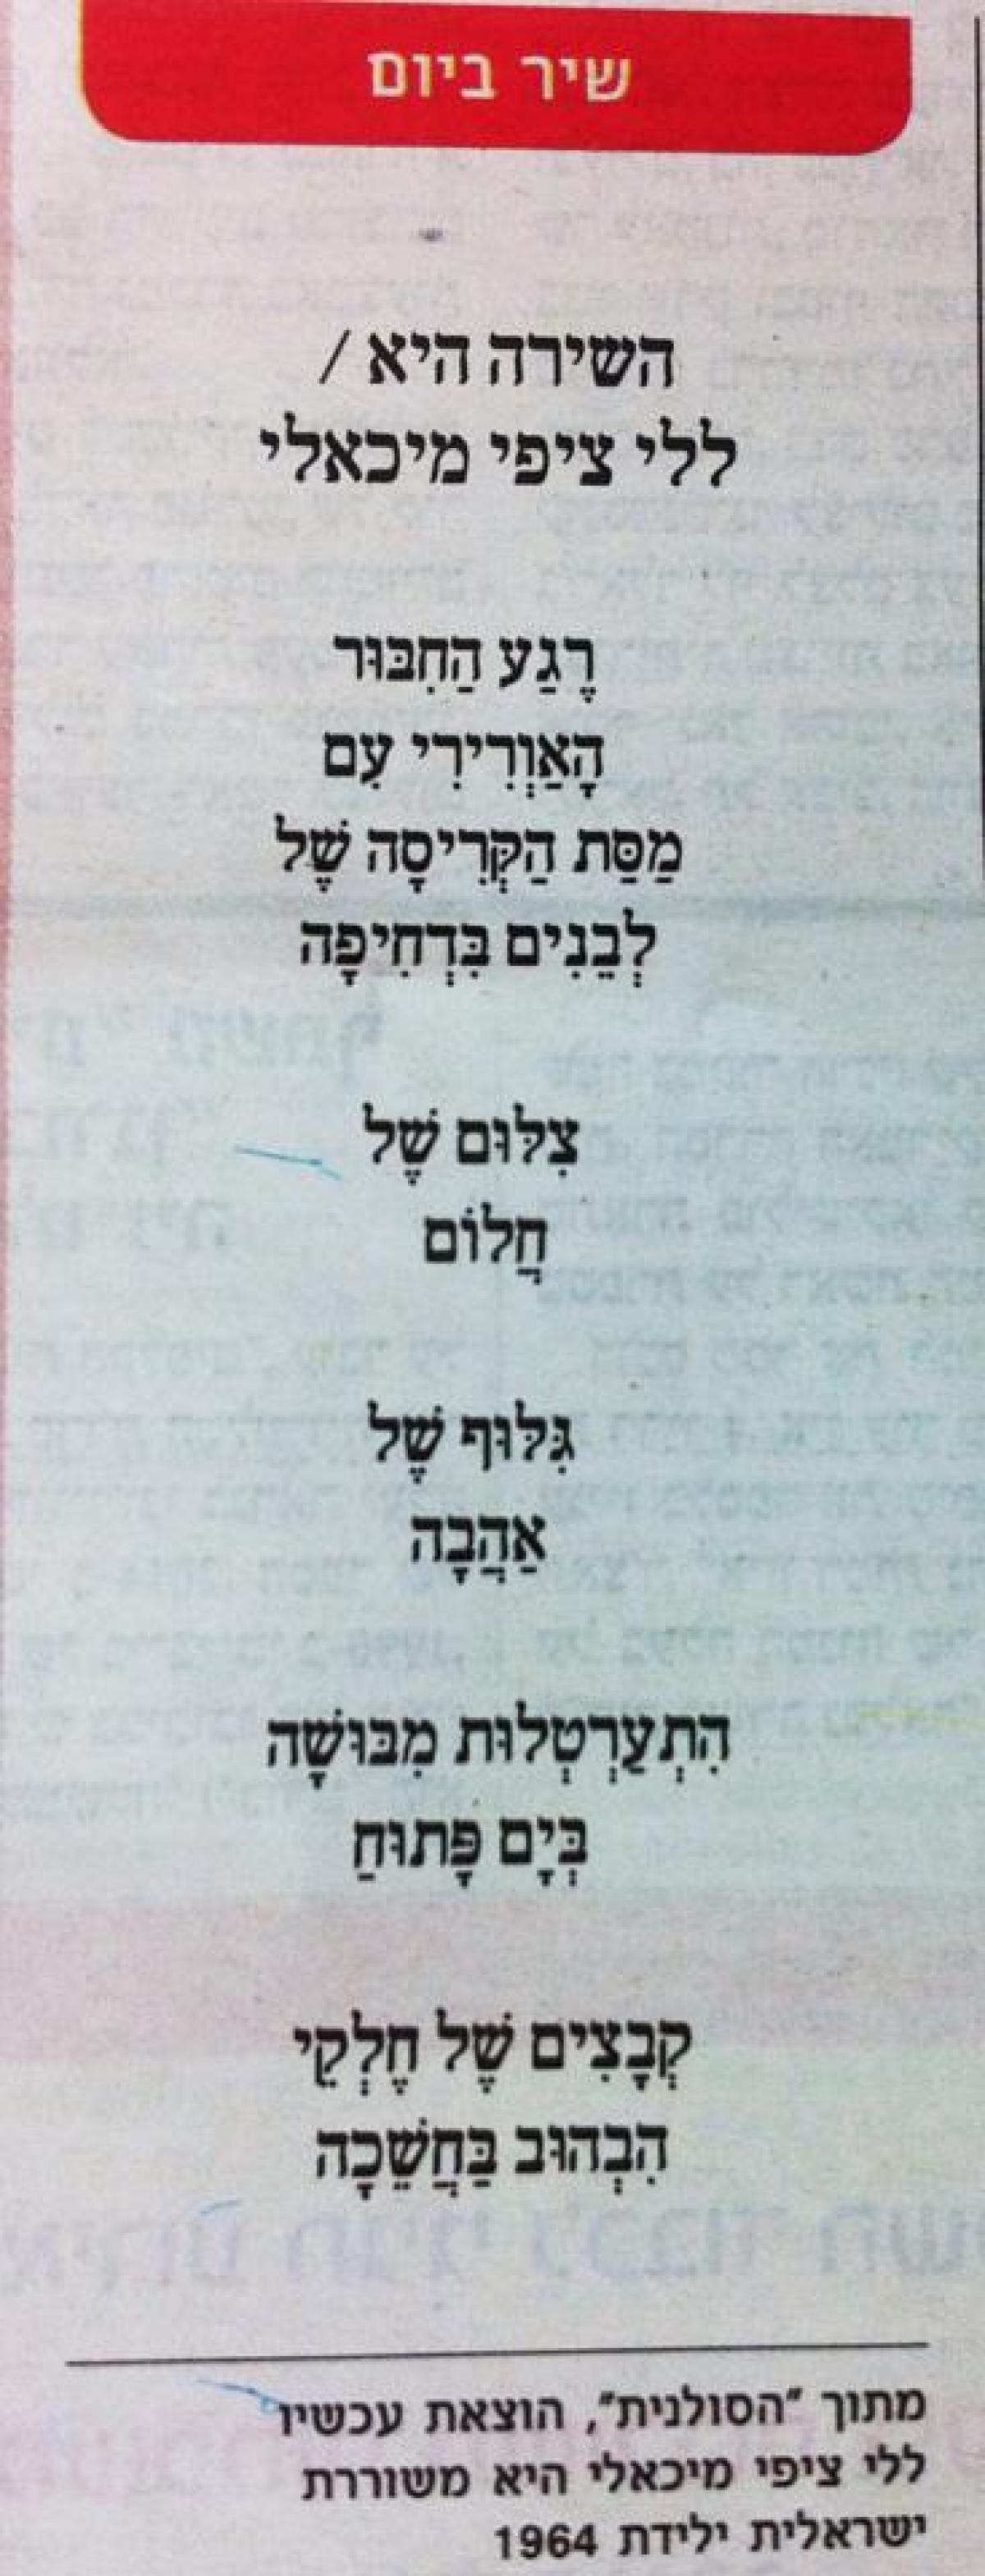 שיר ביום
השירה היא /
ללי ציפי מיכאלי
רֶגַע הַחִבּוּר
הָאַוְרִירִי עִם
מַסַּת הַקְּרִיסָה שֶׁל
לְבֵנִים בִּדְחִיפָה
צִלּוּם שֶׁל
חֲלוֹם
גִּלּוּף שֶׁל
אַהֲבָה
הִתְעַרְטְלוּת מִבּוּשָׁה
בְּיָם פָּתוּחַ
קְבָצִים שֶׁל חֶלְקֵי
הִבְהוּב בַּחֲשֵׁכָה
מתוך "הסולנית", הוצאת עכשיו
ללי ציפי מיכאלי היא משוררת
ישראלית ילידת 1964